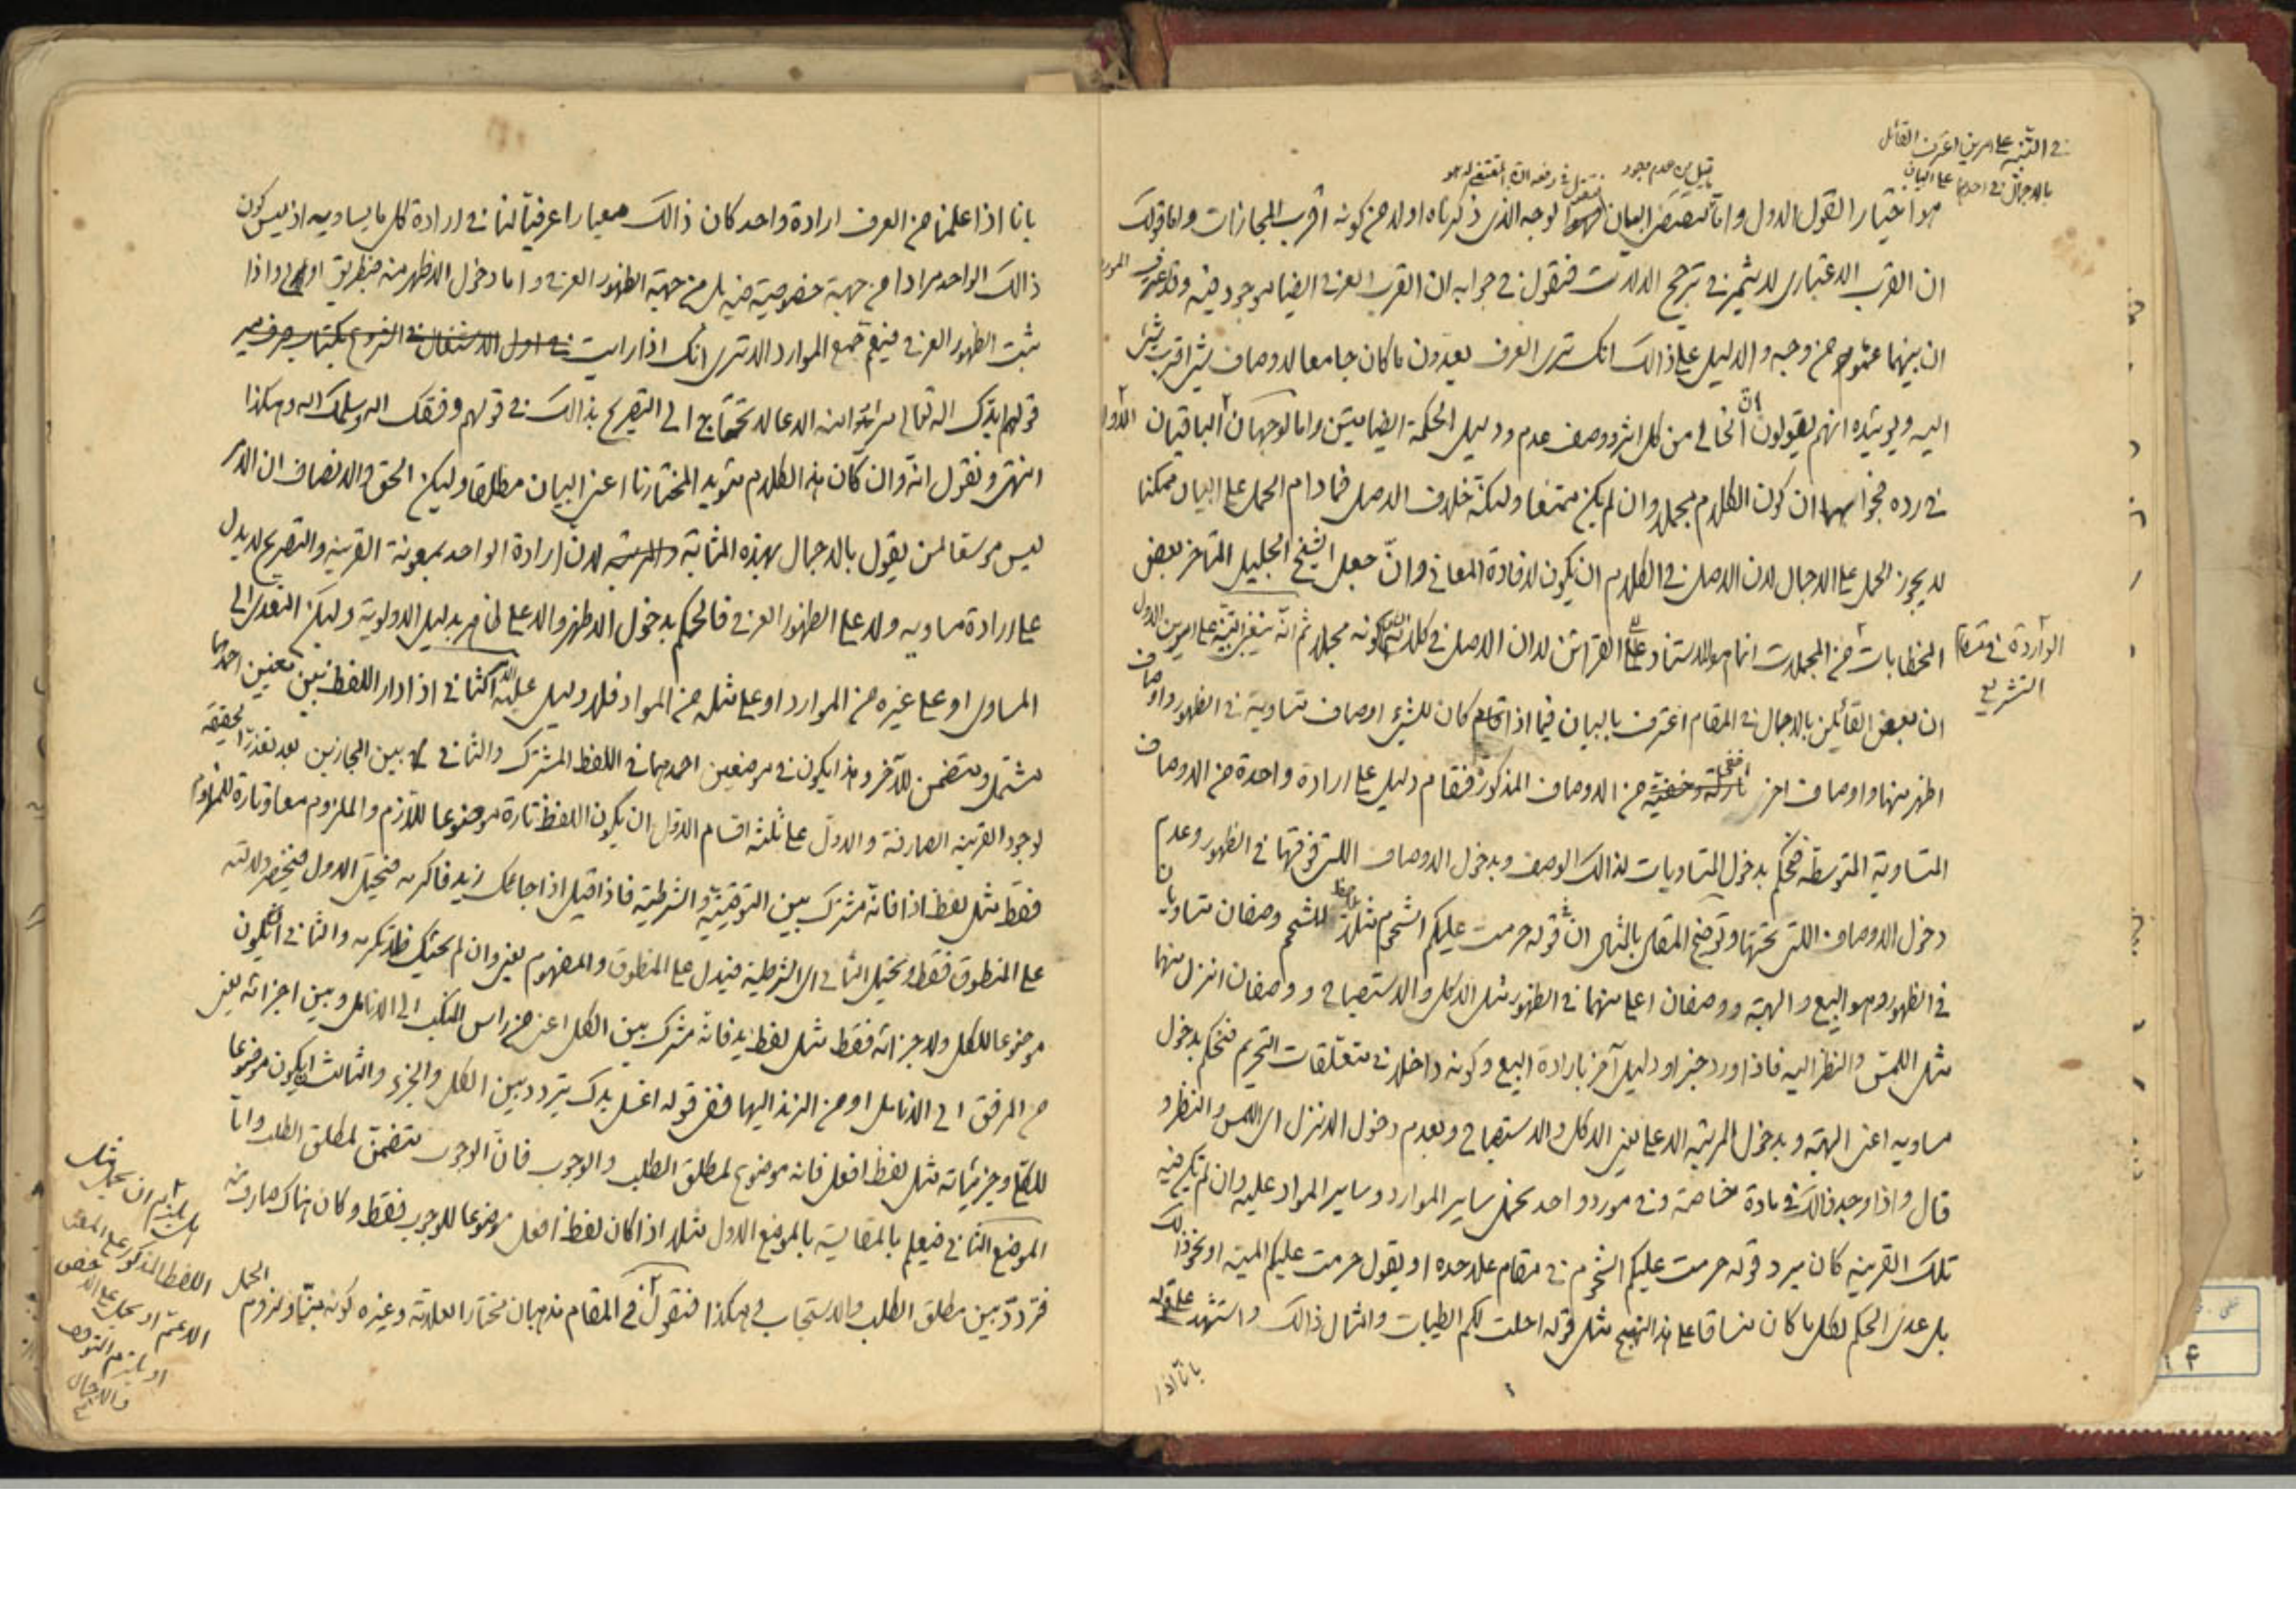 في التنبيه على امرين اعترف القائل
بالاجمال في احدهما على البيان
هو اختيار القول الاول واما لوجه الذى ذكرناه اولا من كونه اقرب المجازات واما قولك
ان القرب الاعتبارى لا يثمر في ترجيح الدلالات فنقول في جوابه ان القرب العرفي ايضا موجود فيه وقد عرف
ان بينهما عموم من وجه والدليل على ذالك انك ترى العرف يعدون ما كان جامعا لاوصاف شئ اقرب بشئ
اليه ويؤيده انهم يقولون ان الخالي من كل اثر ووصف عدم ودليل الحكمة ايضا متين واما لوجهان الباقيان
في رده فجوابهما ان كون الكلام مجملا وان لم يكن ممتنعا ولكنه خلاف الاصل فما دام الحمل على البيان ممكنا
لا يجوز الحمل على الاجمال لان الاصل في الكلام ان يكون لافادة المعاني وان جعل الشيخ الجليل المتاخر بعض
الخطابات من المجملات انما هو للاستناد على القرائن لا ان الاصل في كلامه كونه مجملا ثم انه ينبغي التنبيه على امرين الاول
الواردة في مقام
التشريع
ان بعض القائلين بالاجمال في المقام اعترف بالبيان فيما اذا كان للشئ اوصاف متساوية في الظهور واوصاف
اظهر منها واوصاف اخر اخفى من الاوصاف المذكورة فقام دليل على ارادة واحدة من الاوصاف
المتساوية المتوسطة فحكم بدخول المتساويات لذالك الوصف وبدخول الاوصاف اللتى فوقها في الظهور وعدم
دخول الاوصاف اللتى تحتها وتوضيح المقال بالمثال ان في قوله حرمت عليكم الشحوم مثلا للشحم وصفان متساويان
في الظهور وهو البيع والهبة ووصفان اعلى منهما في الظهور مثل الاكل والاستصباح ووصفان انزل منهما
مثل اللمس والنظر اليه فاذا ورد خبر او دليل آخر بارادة البيع وكونه داخلا في متعلقات التحريم فنحكم بدخول
مساويه اعنى الهبة وبدخول المرتبة الاعلى يعنى الاكل والاستصباح وبعدم دخول الانزل اى اللمس والنظر و
قال واذا وجد ذالك في مادة خاصة وفي مورد واحد نحمل ساير الموارد وساير المواد عليه وان لم تكن فيه
تلك القرينة كان يرد قوله حرمت عليكم الشحوم في مقام علاحده او يقول حرمت عليكم الميتة او نحو ذالك
بل عدى الحكم لكل ما كان منساقا على هذا النهج مثل قوله احلت لكم الطيبات وامثال ذالك واستشهد على قوله
بانا اذا
بانا اذا علمنا من العرف ارادة واحد كان ذالك معيارا عرفيا لنا في ارادة كل ما يساويه اذ ليس كون
ذالك الواحد مرادا من جهة خصوصية فيه بل من جهة الظهور العرفي واما دخول الاظهر منه فبطريق اولى واذا
ثبت الظهور العرفي فيعم جميع الموارد الا ترى انك اذا رايت
قولهم ايدك الله تعالى لا تحتاج الى التصريح بذالك في قولهم وفقك الله وسلمك الله وهكذا
انتهى ونقول انه وان كان هذا الكلام مؤيد المختارنا اعنى البيان مطلقا ولكن الحق والانصاف ان الامر
ليس موسعا لمن يقول بالاجمال بهذه المثابة لان ارادة الواحد بمعونة القرينة والتصريح لا يدل
على ارادة مساويه ولا على الظهور العرفي فالحكم بدخول الاظهر والاعلى لدليل الاولوية وليكن التعدى الى
المساوى او على غيره من الموارد او على مثله من المواد فلا دليل عليه الثاني في اذا دار اللفظ بين معنيين احدهما
مشتمل ومتضمن للآخر وهذا يكون في موضعين احدهما في اللفظ المشترك والثاني بين المجازين بعد تعذر الحقيقة
لوجود القرينة الصارفة والاول على ثلثة اقسام الاول ان يكون اللفظ تارة موضوعا للازم والملزوم معا وتارة للملزوم
فقط مثل لفظ اذا فانه مشترك بين التوقيتية والشرطية فاذا قيل اذا جائك زيد فاكرمه فيحتمل الاول فينحصر دلالته
على المنطوق فقط ويحتمل الثاني اى الشرطية فيدل على المنطوق والمفهوم يعنى وان لم يجئك فلا تكرمه والثاني ان يكون
موضوعا للكل ولاجزائه فقط مثل لفظ يد فانه مشترك بين الكل اعنى من راس المنكب الى الانامل وبين اجزائه يعنى
من المرفق الى الانامل او من الزند اليها ففي قوله اغسل يدك يتردد بين الكل والجزء والثالث ان يكون موضوعا
للكلي وجزئياته مثل لفظ افعل فانه موضوع لمطلق الطلب والوجوب فان الوجوب متضمن لمطلق الطلب واما
الموضع الثاني فيعلم بالمقايسة بالموضع الاول مثلا اذا كان لفظ افعل موضوعا للوجوب فقط وكان هناك صارف عنه
فتردد بين مطلق الطلب والاستحباب وهكذا فنقول في المقام مذهبان مختار العلامة وغيره كونه مبينا ولزوم الحمل
اللفظ المذكور على المعنى
الاعم او يحمل على الاخص
او يلتزم التوقف
والاجمال